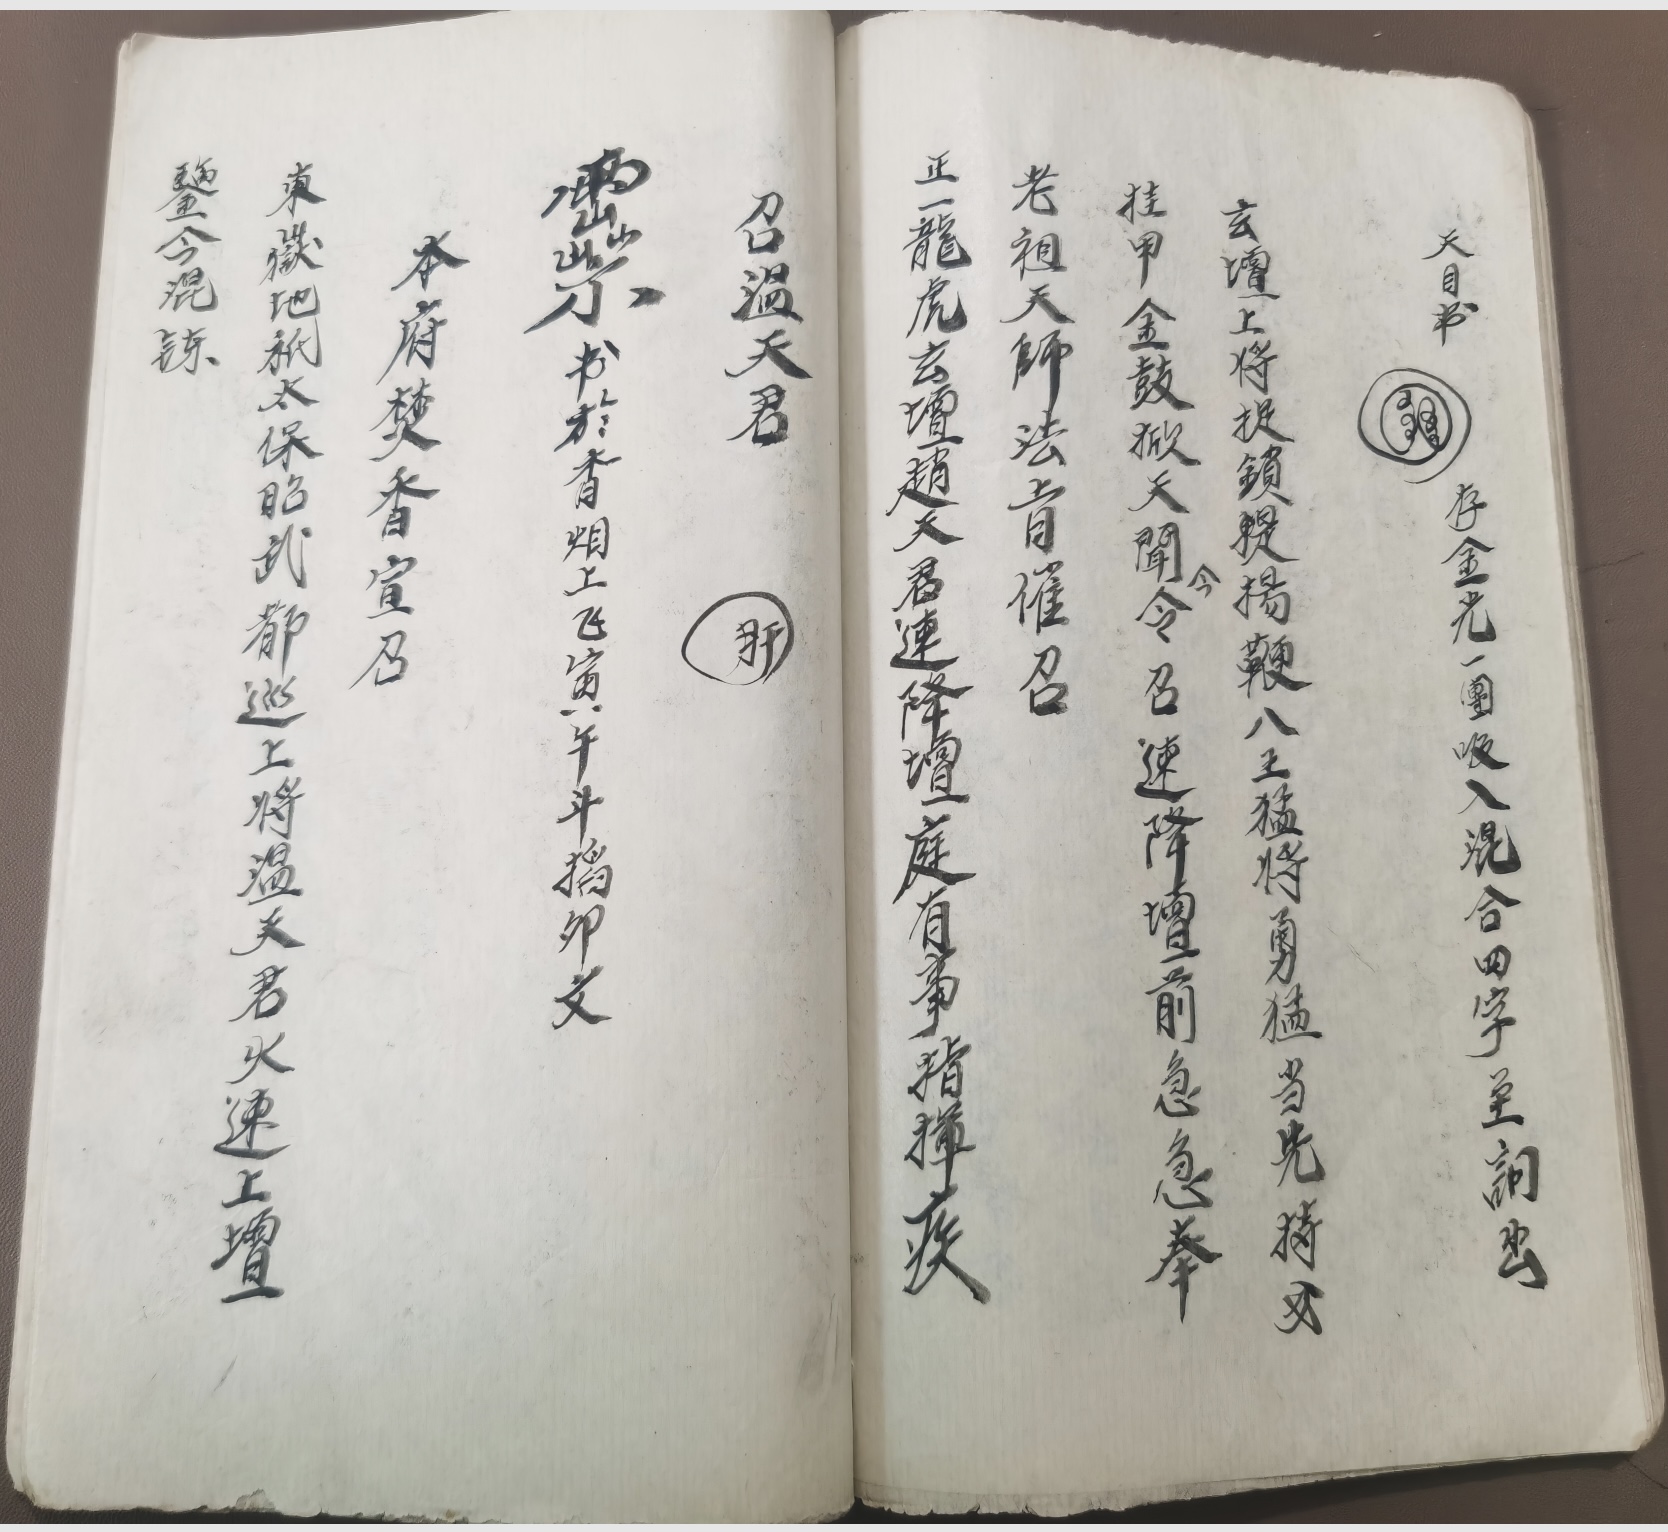 天目书 存金光一團吸入混合四字至詞出
玄壇上将捉鎖提揚鞭八王猛将勇猛当先持
挂甲金鼓掀天聞令今召速降壇前急急奉
老祖天師法旨催召
正一龍虎玄壇趙天君速降壇庭有事指揮疾
召温天君 肝
书於香烟上飞寅八午斗搯卯文
本府焚香宣召
東嶽地祇太保昭武都巡上将温天君火速上壇
今混諫